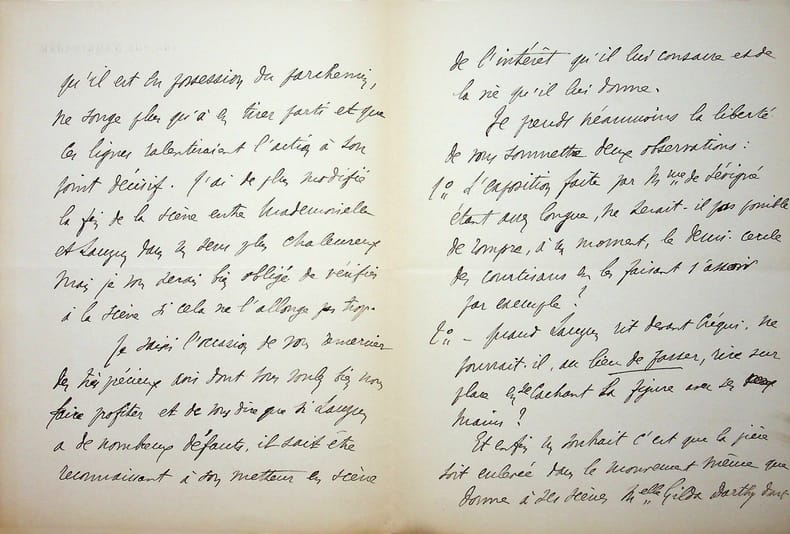 qu'il est en possession du parchemin,
ne songe plus qu'à en tirer parti et que
ces lignes ralentiraient l'action à son
point décisif. J'ai de plus modifié
la fin de la scène entre Mademoiselle
et Lauzun dans un sens plus chaleureux
mais je vous serais bien obligé de vérifier
à la scène si cela ne l'allonge pas trop.
Je saisis l'occasion de vous remercier
des très précieux avis dont vous voulez bien nous
faire profiter et de vous dire que si Lauzun
a de nombreux défauts, il sait être
reconnaissant à son metteur en scène
de l'intérêt qu'il lui consacre et de
la vie qu'il lui donne.
Je prends néanmoins la liberté
de vous soumettre deux observations :
1º L'exposition faite par Mme de Sévigné
étant assez longue, ne serait-il pas possible
de rompre, à un moment, le demi-cercle
des courtisans en les faisant s'asseoir
par exemple ?
2º - quand Lauzun rit devant Créqui, ne
pourrait-il, au lieu de passer, rire sur
place en se cachant la figure avec ses
mains ?
Et enfin un souhait c'est que la pièce
soit enlevée dans le mouvement même que
donne à ses scènes Melle Gilda Darthy dont